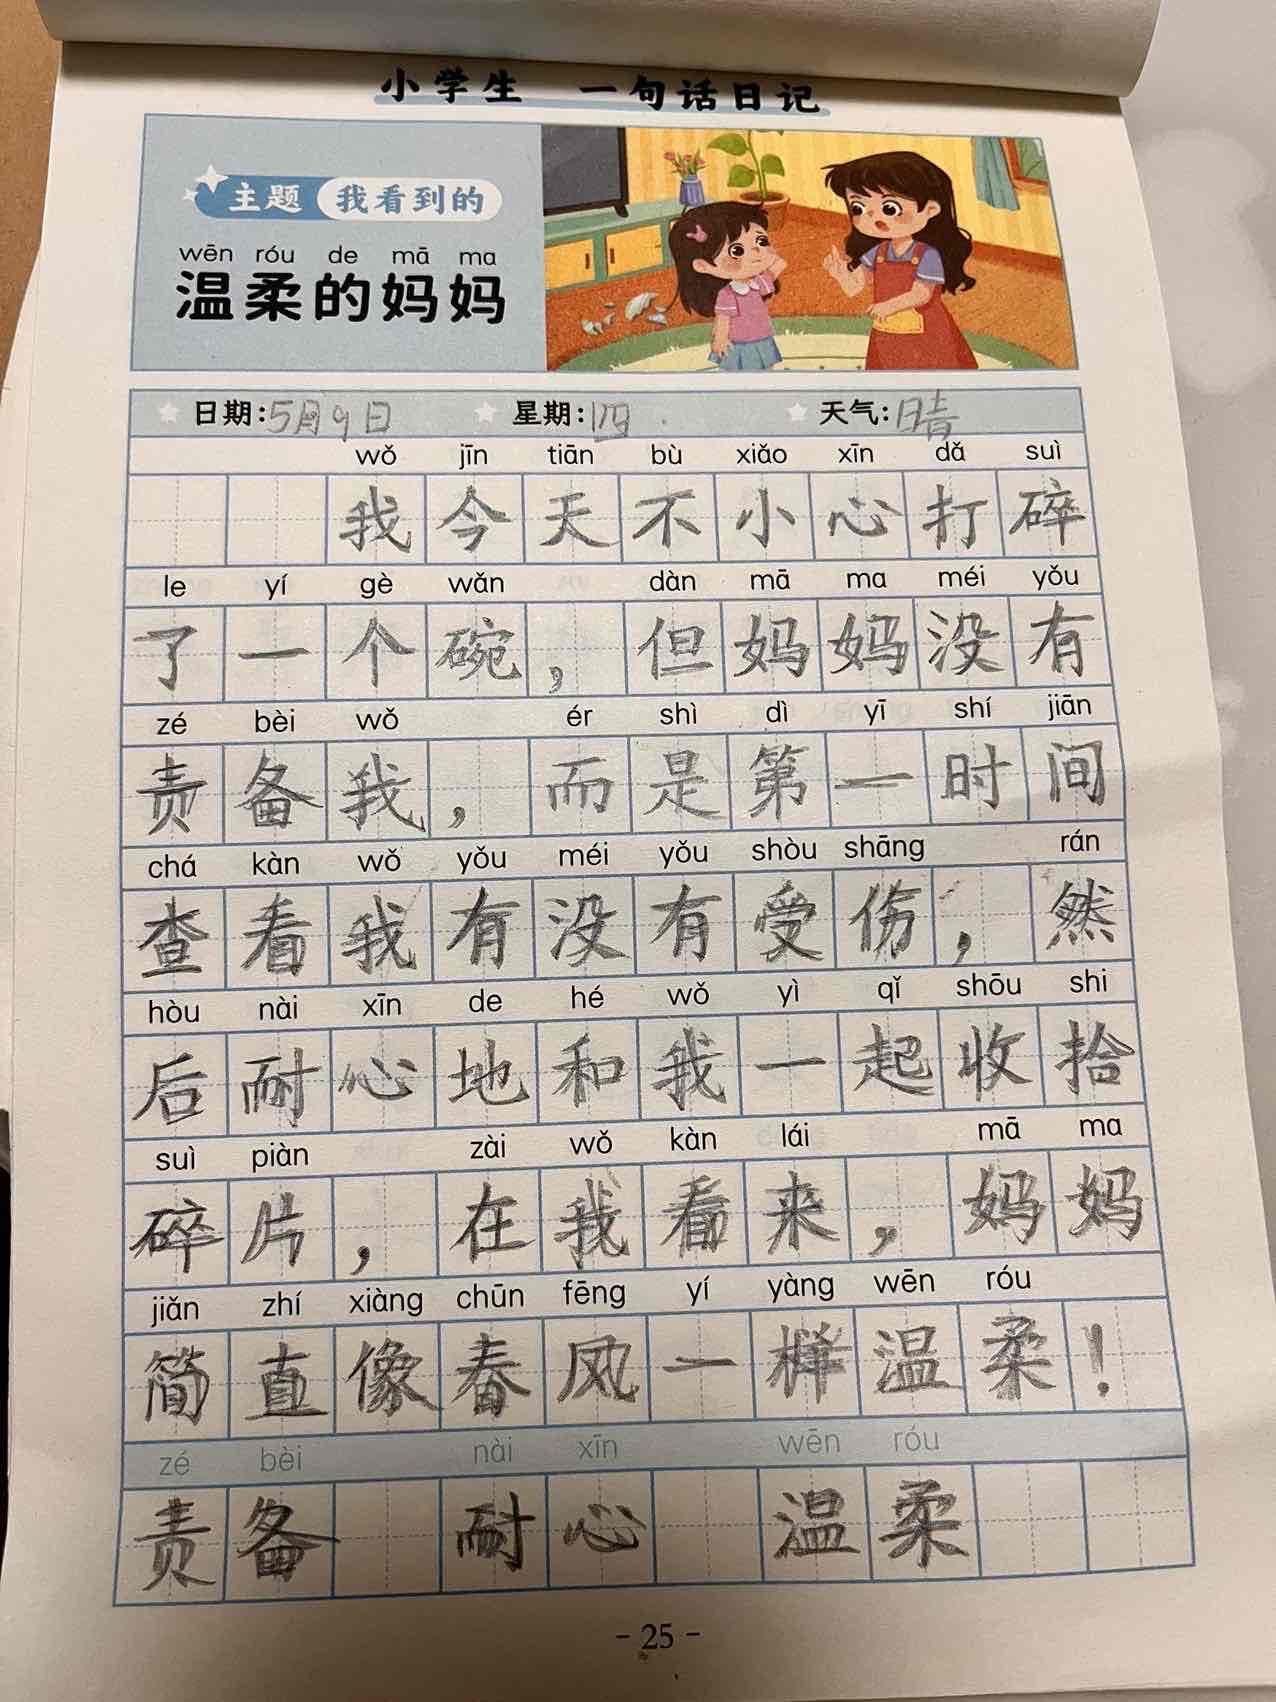 小学生 一句话日记
主题 我看到的
wēn róu de mā ma
温柔的妈妈
日期:5月9日 星期:四 天气:晴
wǒ jīn tiān bù xiǎo xīn dǎ suì
我今天不小心打碎
le yí gè wǎn dàn mā ma méi yǒu
了一个碗，但妈妈没有
zé bèi wǒ ér shì dì yī shí jiān
责备我，而是第一时间
chá kàn wǒ yǒu méi yǒu shòu shāng rán
查看我有没有受伤，然
hòu nài xīn de hé wǒ yì qǐ shōu shi
后耐心地和我一起收拾
suì piàn zài wǒ kàn lái mā ma
碎片，在我看来，妈妈
jiǎn zhí xiàng chūn fēng yí yàng wēn róu
简直像春风一样温柔！
zé bèi nài xīn wēn róu
责备 耐心 温柔
- 25 -